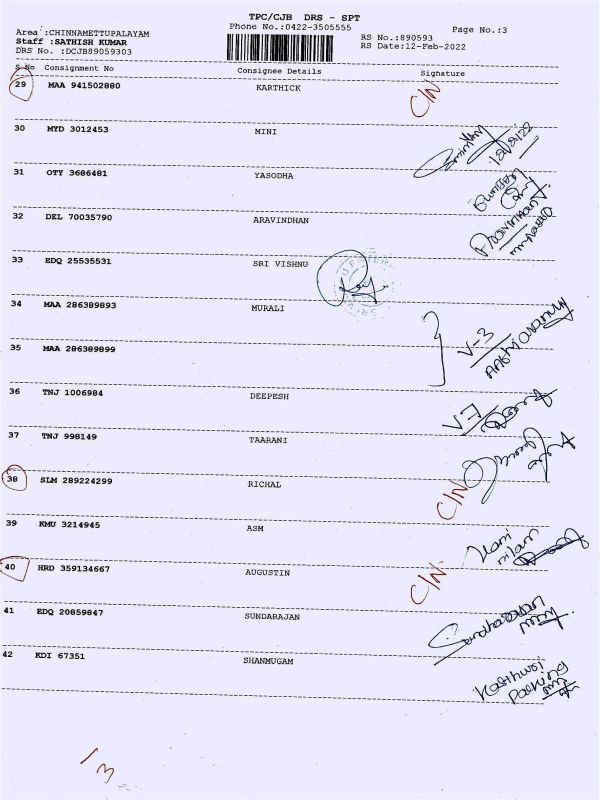 TPC/CJB DRS - SPT
Phone No.:0422-3505555
Page No.:3
Area :CHINNAMETTUPALAYAM
Staff :SATHISH KUMAR
DRS No. :DCJB89059303
RS No.:890593
RS Date:12-Feb-2022
S No Consignment No Consignee Details Signature
29 MAA 941502880 KARTHICK C/N
30 MYD 3012453 MINI
31 OTY 3686481 YASODHA
32 DEL 70035790 ARAVINDHAN
33 EDQ 25535531 SRI VISHNU
34 MAA 286389893 MURALI V-3
35 MAA 286389899
36 TNJ 1006984 DEEPESH
37 TNJ 998149 TAARANI
38 SLM 289224299 RICHAL C/N
39 KMU 3214945 ASM
40 HRD 359134667 AUGUSTIN C/N
41 EDQ 20859847 SUNDARAJAN
42 KDI 67351 SHANMUGAM